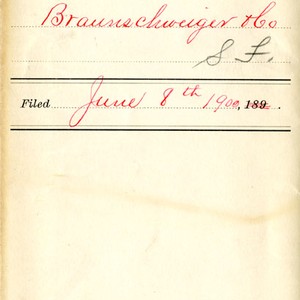 Braunschweiger & Co
S F.
Filed June 8th 1900, 189 .